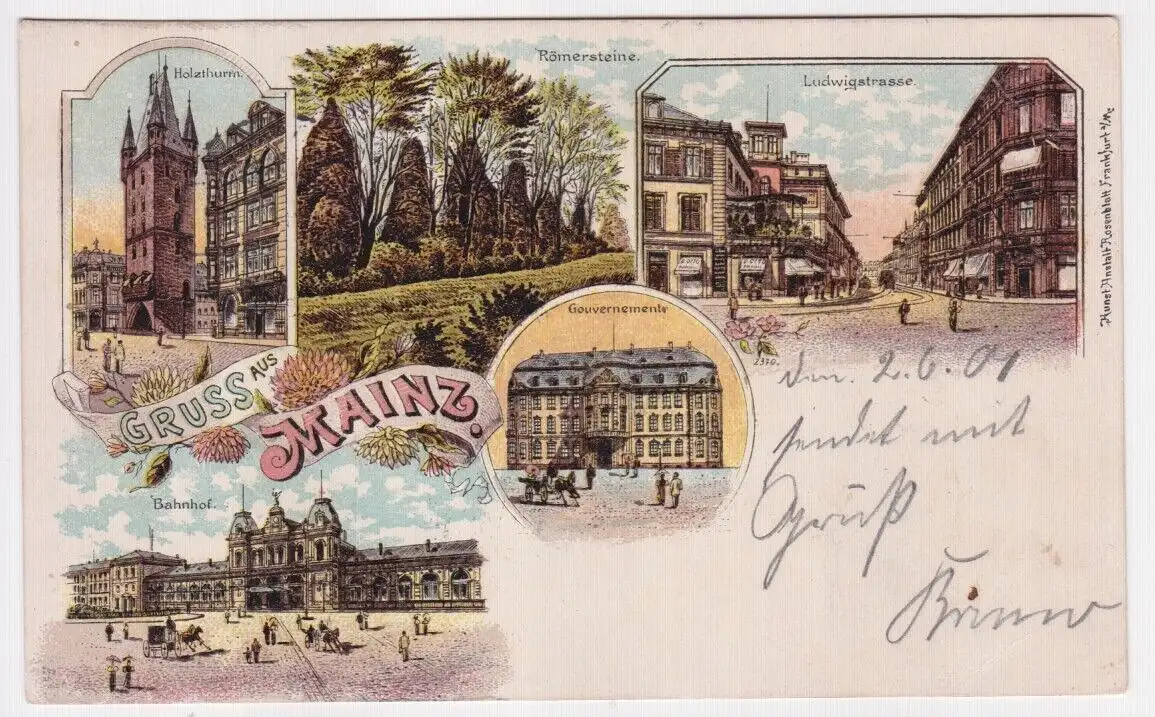 Holzthurm.
Römersteine.
Ludwigstrasse.
Kunst Anstalt Rosenblatt Frankfurt a/M.
Gouvernement
GRUSS AUS
MAINZ.
Bahnhof.
den 2.6.01
sendet mit
Gruß
Bruno